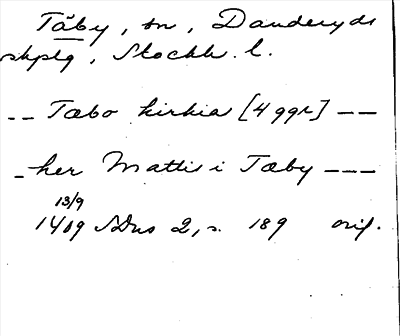 Täby, sn, Danderyds
skplg, Stockh. l.
-- Tæbo kirkia [4 ggr] --
- her Mattis i Tæby ---
13/9
1409 SDns 2, s. 189 orig.